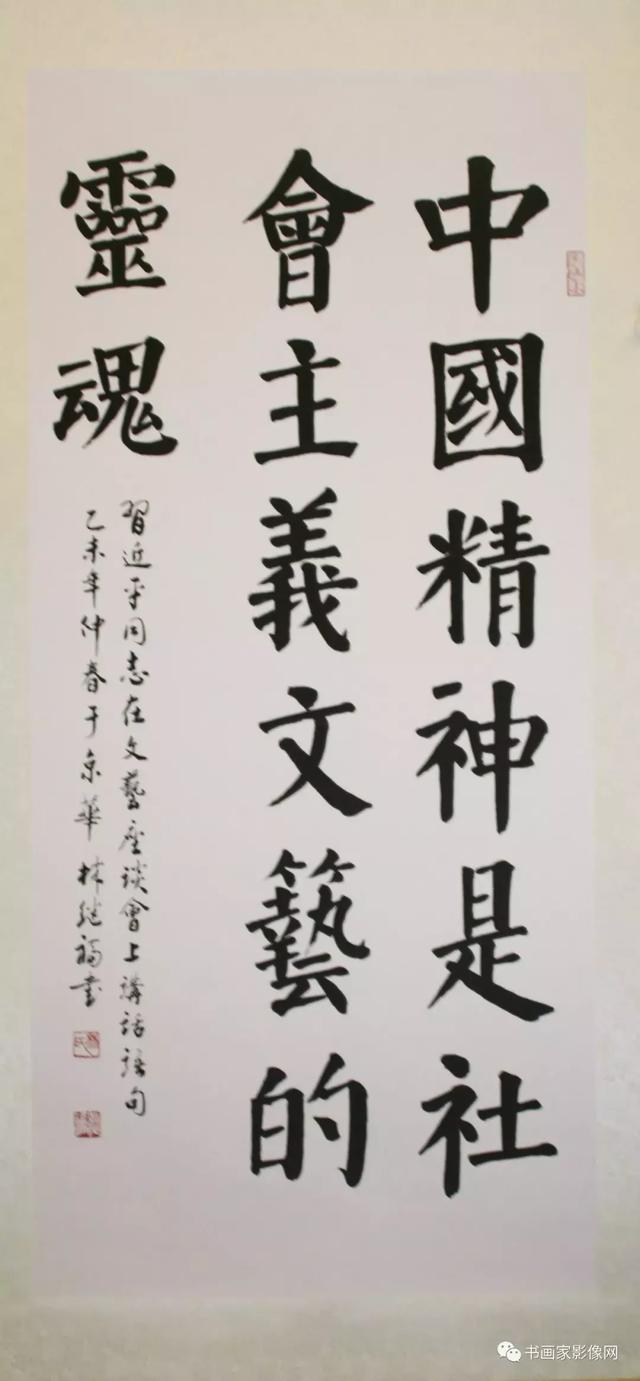 中國精神是社
會主義文藝的
靈魂
習近平同志在文藝座談會上講話語句
乙未年仲春于京華林继福書
书画家影像网